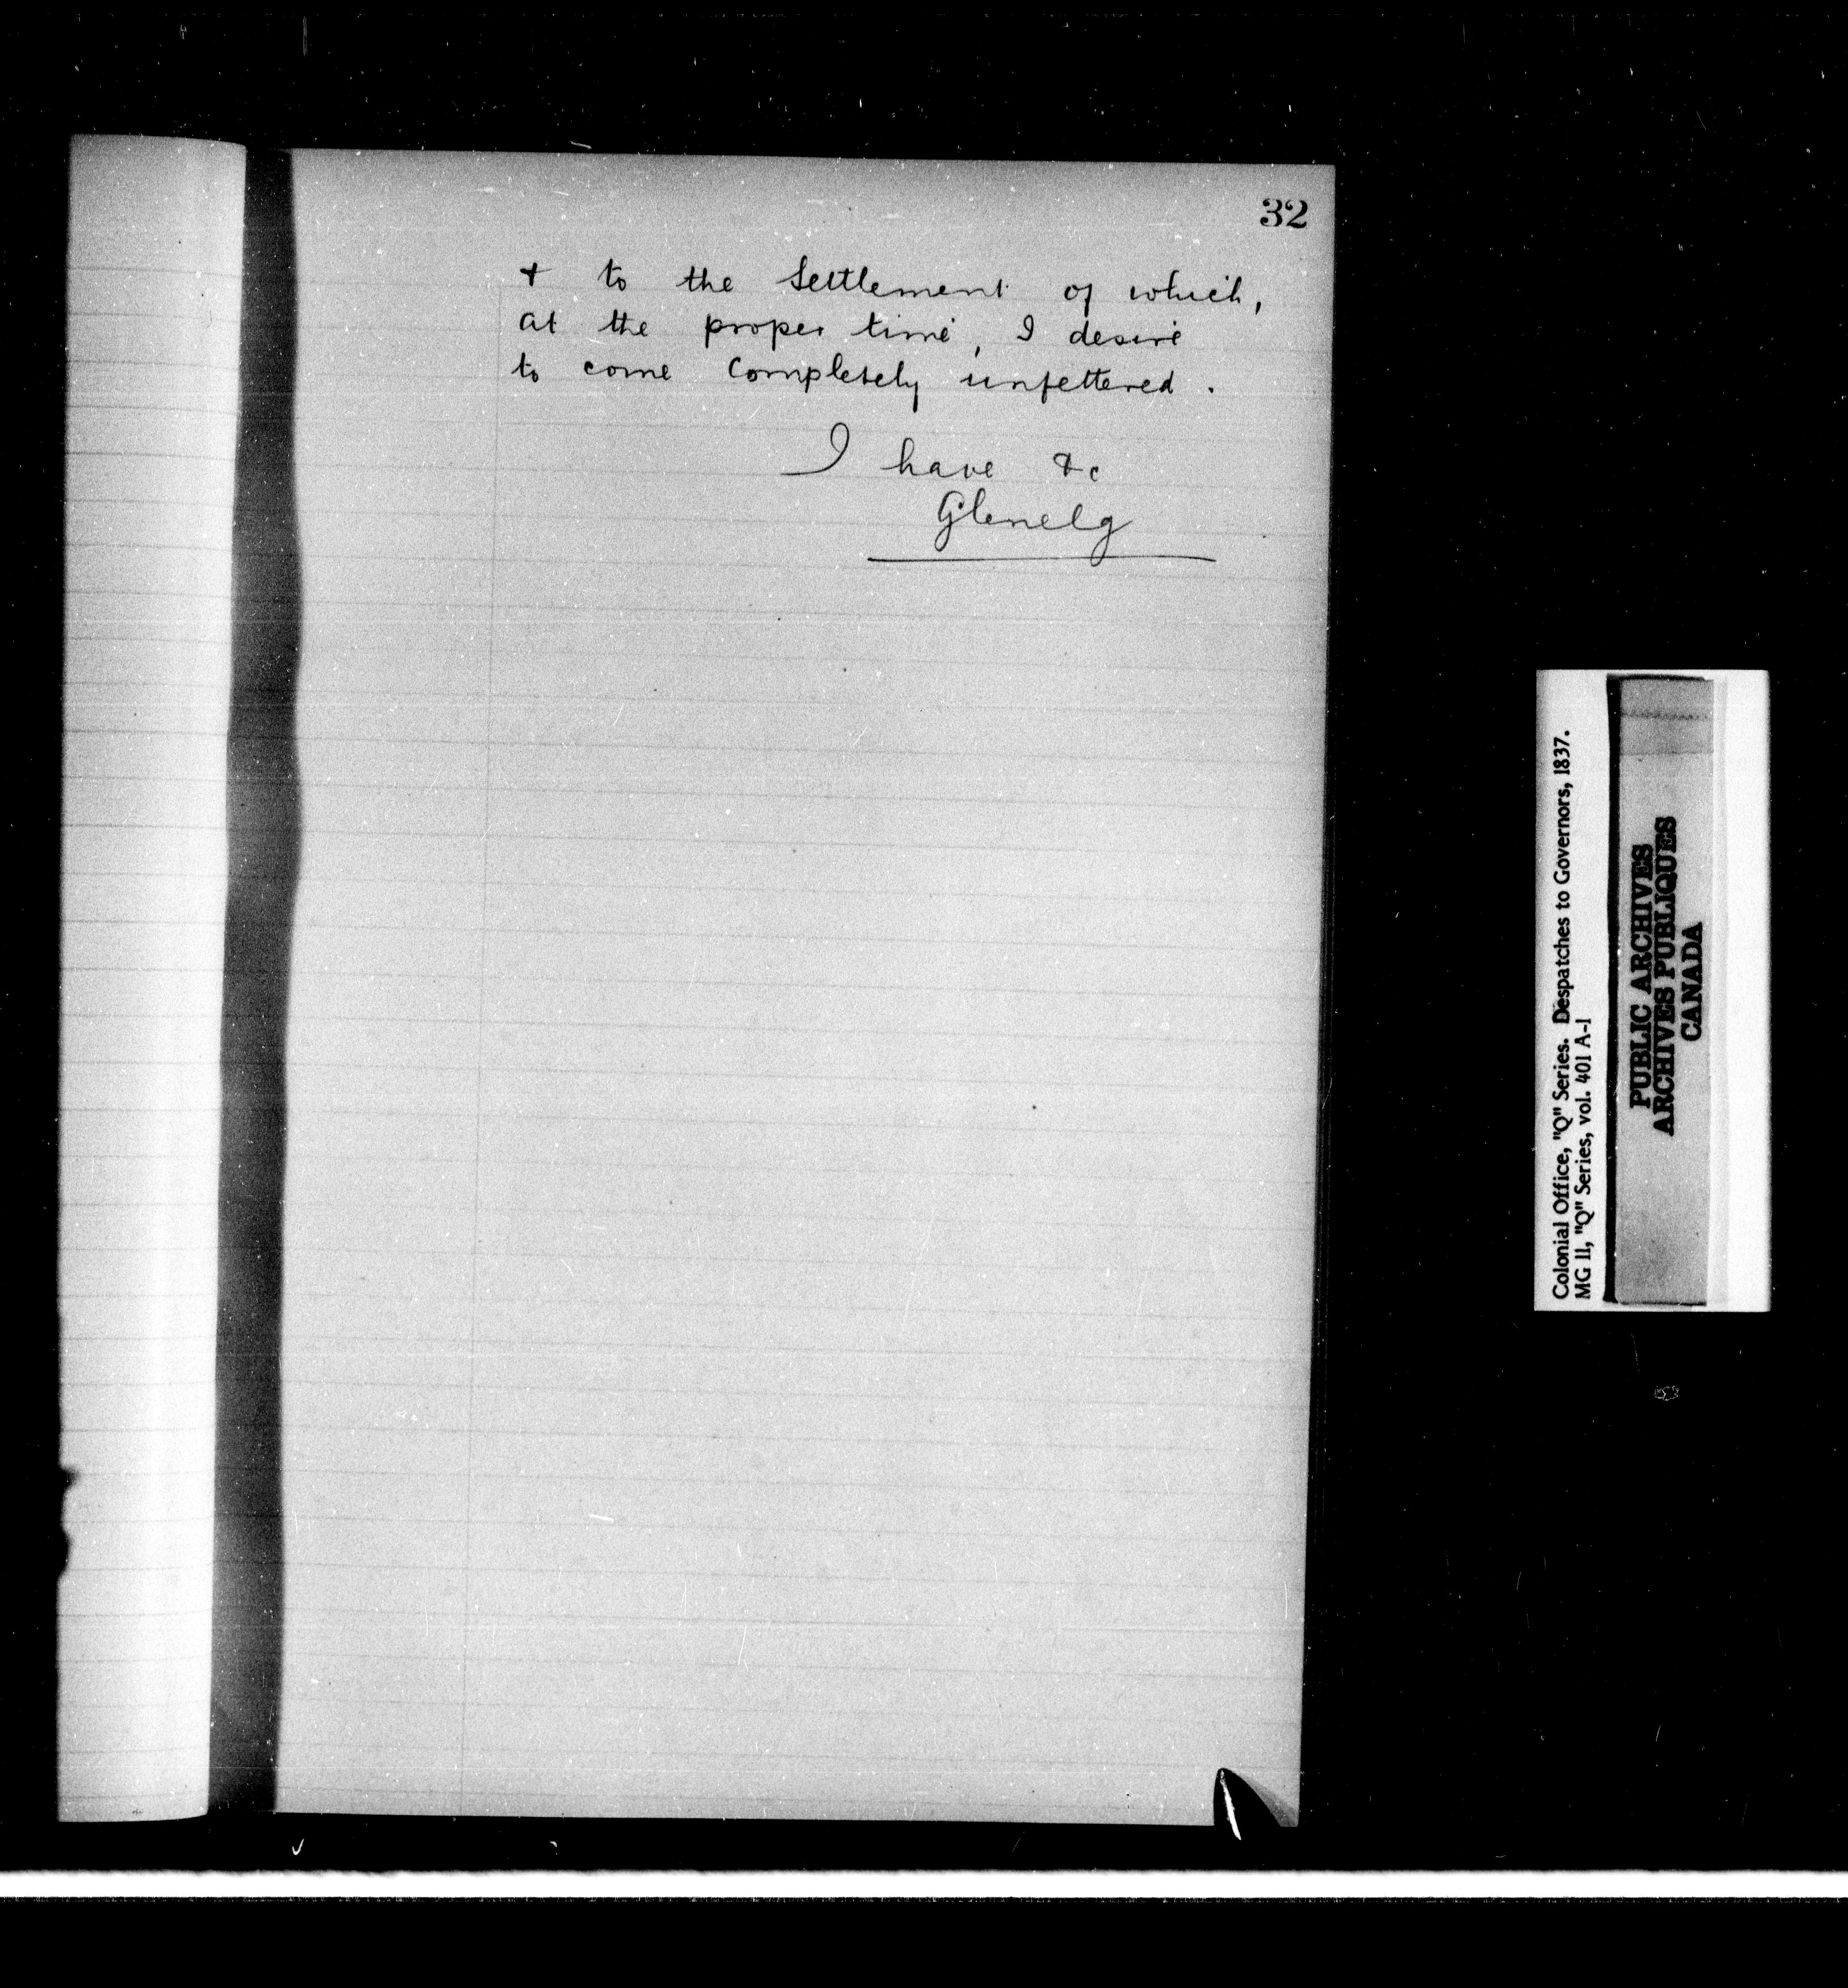 32
& to the Settlement of which,
at the proper time, I desire
to come completely unfettered.
I have &c
Glenelg
Colonial Office, "Q" Series. Despatches to Governors, 1837.
MG 11, "Q" Series, vol. 401 A-1
PUBLIC ARCHIVES
ARCHIVES PUBLIQUES
CANADA